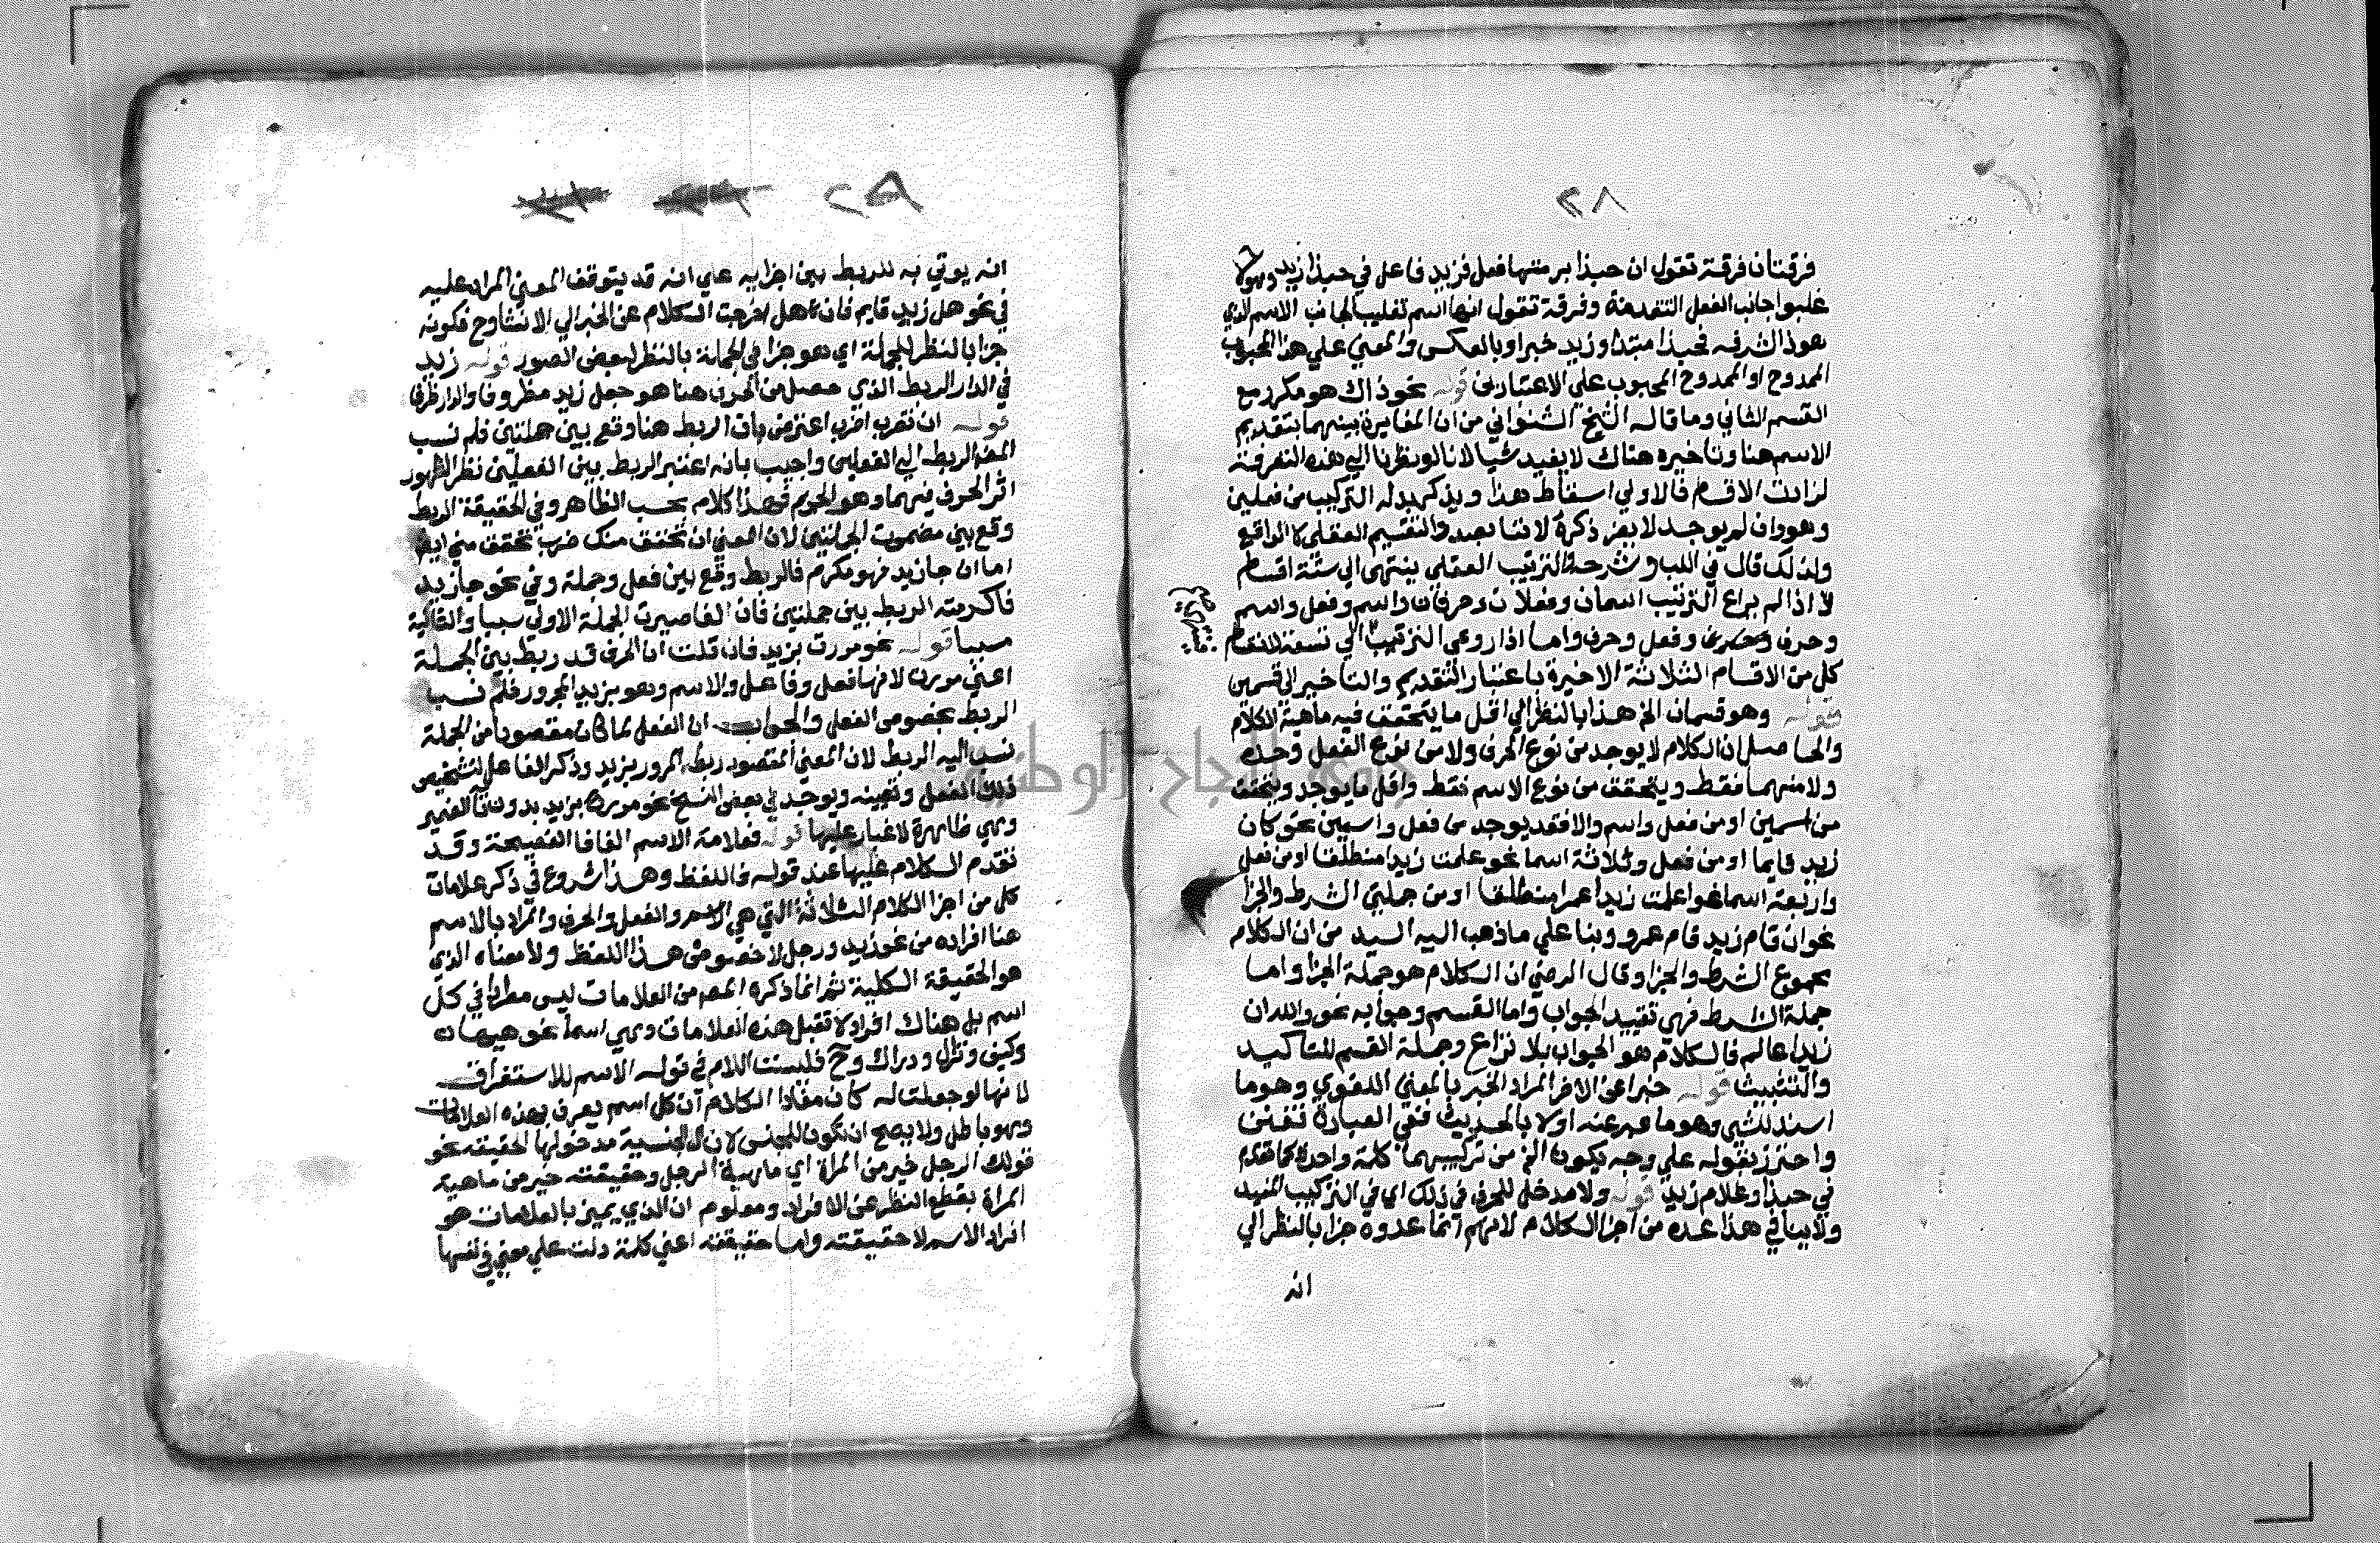 ٢٨
فرقتان فرقة تقول ان حبذا برمتها فعل فزيد فاعل في حبذا زيد وهولا
غلبوا جانب الفعل لتقدمه وفرقة تقول انها اسم تغليبا لجانب الاسم الذي
هو ذا لشرفه فحبذا مبتدا وزيد خبر او بالعكس والمعني علي هذا المحبوب
الممدوح او الممدوح المحبوب علي الاعتبارين قوله نحو ذاك هو مكرر مع
القسم الثاني وما قاله الشيخ الشنواني من ان المغايرة بينهما بتقديم
الاسم هنا وتاخيره هناك لا يفيد شيا لانا لو نظرنا الي هذه التفرقة
لزادت الاقسام فالاولي اسقاط هذا ويذكر بدله التركيب من فعلين
وهو وان لم يوجد لا يضر ذكره لاننا بصدد التقسيم العقلي لا الواقع
ولذلك قال في اللب وشرحه التركيب العقلي ينتهي الي ستة اقسام
اذا لم يراع الترتيب اسمان وفعلان وحرفان واسم وفعل واسم
وحرف وفعل وحرف واما اذا روعي الترتيب الي تسعة لانقسام
كل من الاقسام الثلاثة الاخيرة باعتبار التقديم والتاخير الي قسمين
قوله وهو قسمان الخ هذا بالنظر الي اقل ما يتحقق فيه ماهية الكلام
والحاصل ان الكلام لا يوجد من نوع الحرف ولا من نوع الفعل وحده
ولا منهما فقط ويتحقق من نوع الاسم فقط واقل ما يوجد ويتحقق
من اسمين او من فعل واسم والا فقد يوجد من فعل واسمين نحو كان
زيد قايما او من فعل وثلاثة اسما نحو علمت زيدا منطلقا او من فعل
واربعة اسما نحو اعلمت زيدا عمرا منطلقا او من جملتي الشرط والجزا
نحو ان قام زيد قام عمرو وبنا علي ما ذهب اليه السيد من ان الكلام
مجموع الشرط والجزا وقال الرضي ان الكلام هو جملة الجزا واما
جملة الشرط فهي تقييد الجواب واما القسم وجوابه نحو والله ان
زيدا عالم فالكلام هو الجواب بلا نزاع وجملة القسم للتاكيد
والتثبيت قوله خبرا عن الاخر المراد الخبر بالمعني اللغوي وهو ما
اسند لشي وهو ما عبر عنه اولا بالحديث ففي العبارة تفنن
واحترز بقوله علي وجه يكون الخ من تركيبهما كلمة واحدة كما تقدم
في حبذا وغلام زيد قوله ولا مدخل للحرف في ذلك اي في التركيب المفيد
ولا ينافي هذا عده من اجزا الكلام لانهم انما عدوه جزا بالنظر الي
انه
٢٩
انه يوتي به للربط بين اجزايه علي انه قد يتوقف المعني المراد عليه
في نحو هل زيد قايم فان هل اخرجت الكلام عن الخبر الي الانشا وح فكونه
جزا بالنظر للجملة اي هو جزا في الجملة بالنظر لبعض الصور قوله زيد
في الدار الربط الذي حصل من الحرف هنا هو جعل زيد مظروفا والدار ظرفا
قوله ان تضرب اضرب اعترض بان الربط هنا وقع بين جملتين فلم نسب
المص الربط الي الفعلين واجيب بانه اعتبر الربط بين الفعلين نظرا لظهور
اثر الحرف فيهما وهو الجزم فهذا كلام بحسب الظاهر وفي الحقيقة الربط
وقع بين مضمون الجملتين لان المعني ان تحقق منك ضرب تحقق مني ايضا
اما ان جا زيد فهو مكرم فالربط وقع بين فعل وجملة وفي نحو جا زيد
فاكرمته الربط بين جملتين فان الفا صيرت الجملة الاولي سببا والثانية
مسببا قوله نحو مررت بزيد فان قلت ان الحرف قد ربط بين الجملة
اعني مررت لانها فعل وفاعل والاسم وهو بزيد المجرور فلم نسب
الربط بخصوص الفعل والجواب ان الفعل لما كان مقصودا من الجملة
نسب اليه الربط لان المعني المقصود ربط المرور بزيد وذكر الفاعل لتشخيص
ذلك الفعل وتعيينه ويوجد في بعض النسخ نحو مررت بزيد بدون تا الضمير
وهي ظاهرة لا غبار عليها قوله فعلامة الاسم الفا فا الفصيحة وقد
تقدم الكلام عليها عند قوله فاللفظ وهذا شروع في ذكر علامات
كل من اجزا الكلام الثلاثة التي هي الاسم والفعل والحرف والمراد بالاسم
هنا افراده من نحو زيد ورجل لا خصوص هذا اللفظ ولا معناه الذي
هو الحقيقة الكلية ثم انما ذكره المص من العلامات ليس مطردا في كل
اسم بل هناك افراد لا تقبل هذه العلامات وهي اسما نحو هيهات
وكيف ونزال ودراك وح فليست اللام في قوله الاسم للاستغراق
لانها لو جعلت له كان مفاد الكلام ان كل اسم يعرف بهذه العلامات
وهو باطل ولا يصح ان تكون للجنس لان ال الجنسية مدخولها الحقيقة نحو
قولك الرجل خير من المراة اي ماهية الرجل وحقيقته خير من ماهية
المراة بقطع النظر عن الافراد ومعلوم ان الذي يميز بالعلامات هو
افراد الاسم لا حقيقته واما حقيقته اعني كلمة دلت علي معني في نفسها